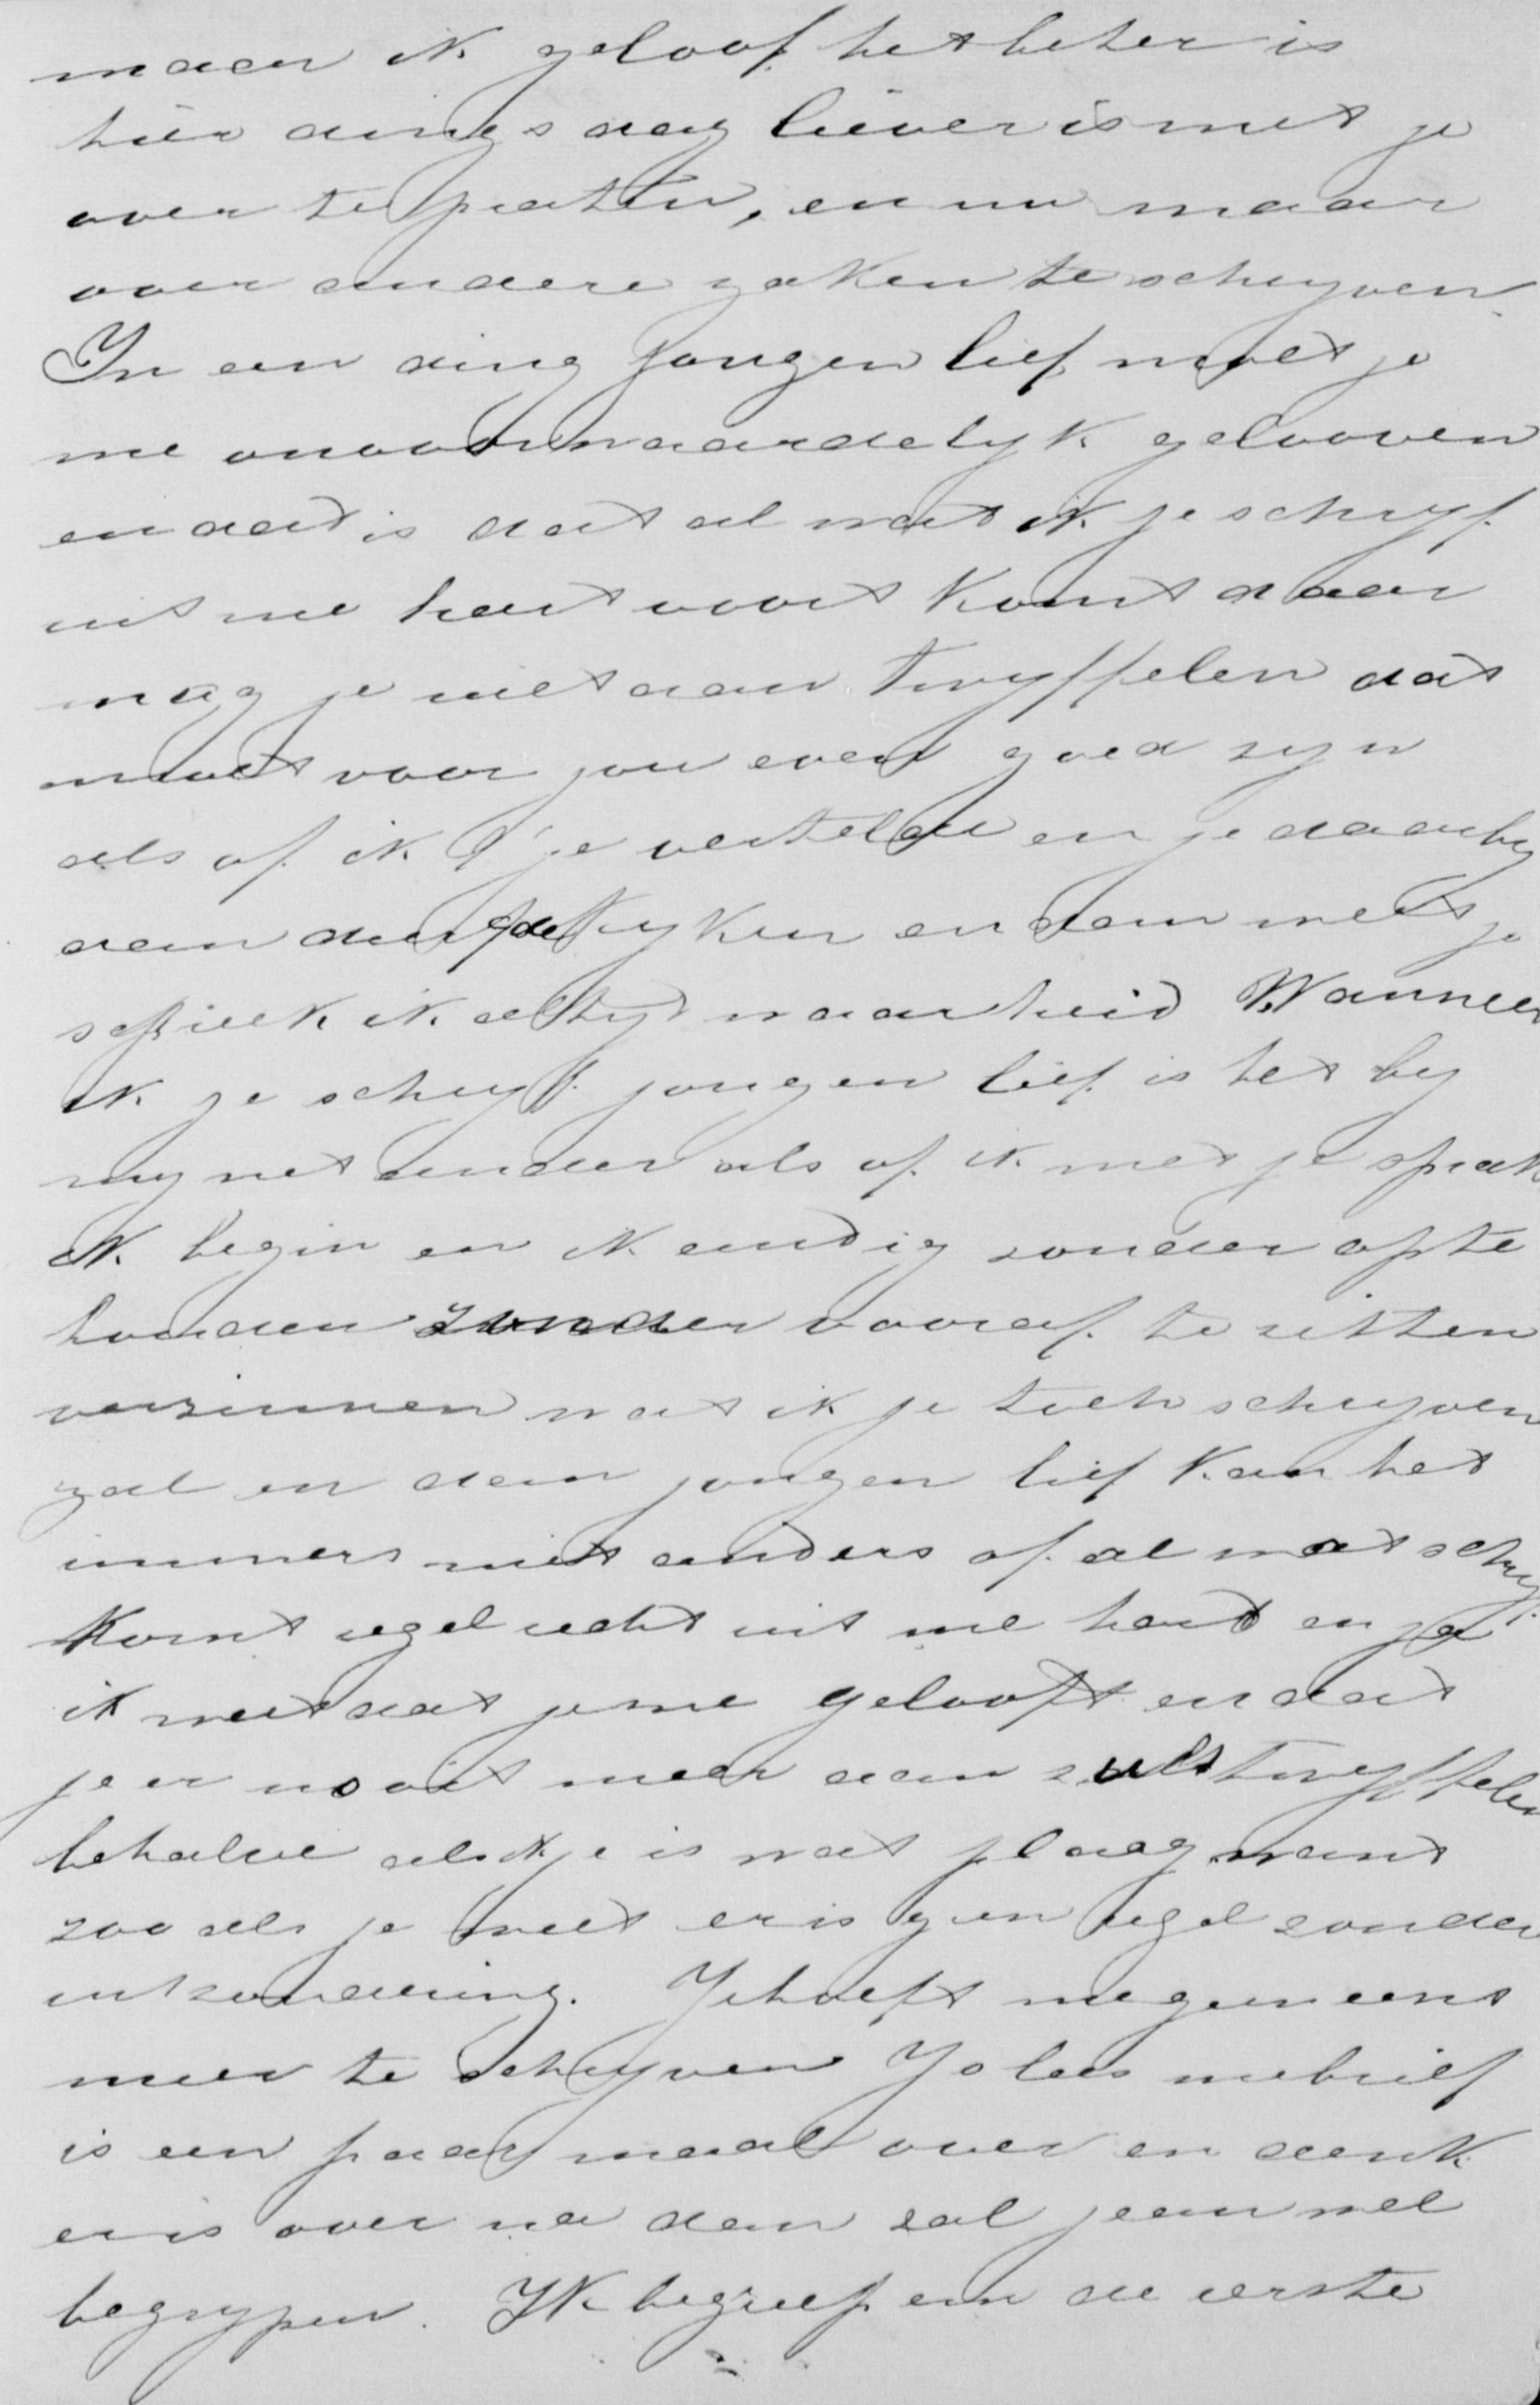 maar ik geloof het beter is
hier dingsdag liever is met je
over te praten, en nu maar
over andere zaken te schryven
In een ding jongen lief moet je
me onvoorwaardelyk gelooven
en dat is dat al wat ik je schryf
uit me hart voort komt daar
mag je niet aan twyffelen dat
moet voor jou even goed zyn
als of ik 't je vertelde en je daarby
aan durfde kyken en dan weet je
spreek ik altyd waarheid Wanneer
ik je schryf jongen lief is het by
my net ander als of ik met je sprak
ik begin en ik eindig zonder op te
houden zonder vooraf te zitten
verzinnen wat ik je toch schryven
zal en dan jongen lief kan het
immers niet anders of al wat schryf
komt regelrecht uit me hart en ja
ik weet dat je me gelooft en dat
je er nooit meer aan zult twyffelen
behalve als ik je is wat plaag want
zoo als je weet er is geen regel zonder
uitzondering. Je hoeft me geen eens
meer te schryven Jo lees me brief
is een paar maal over en denk
er is over na dan zal je em wel
begrypen. Ik begreep em de eerste